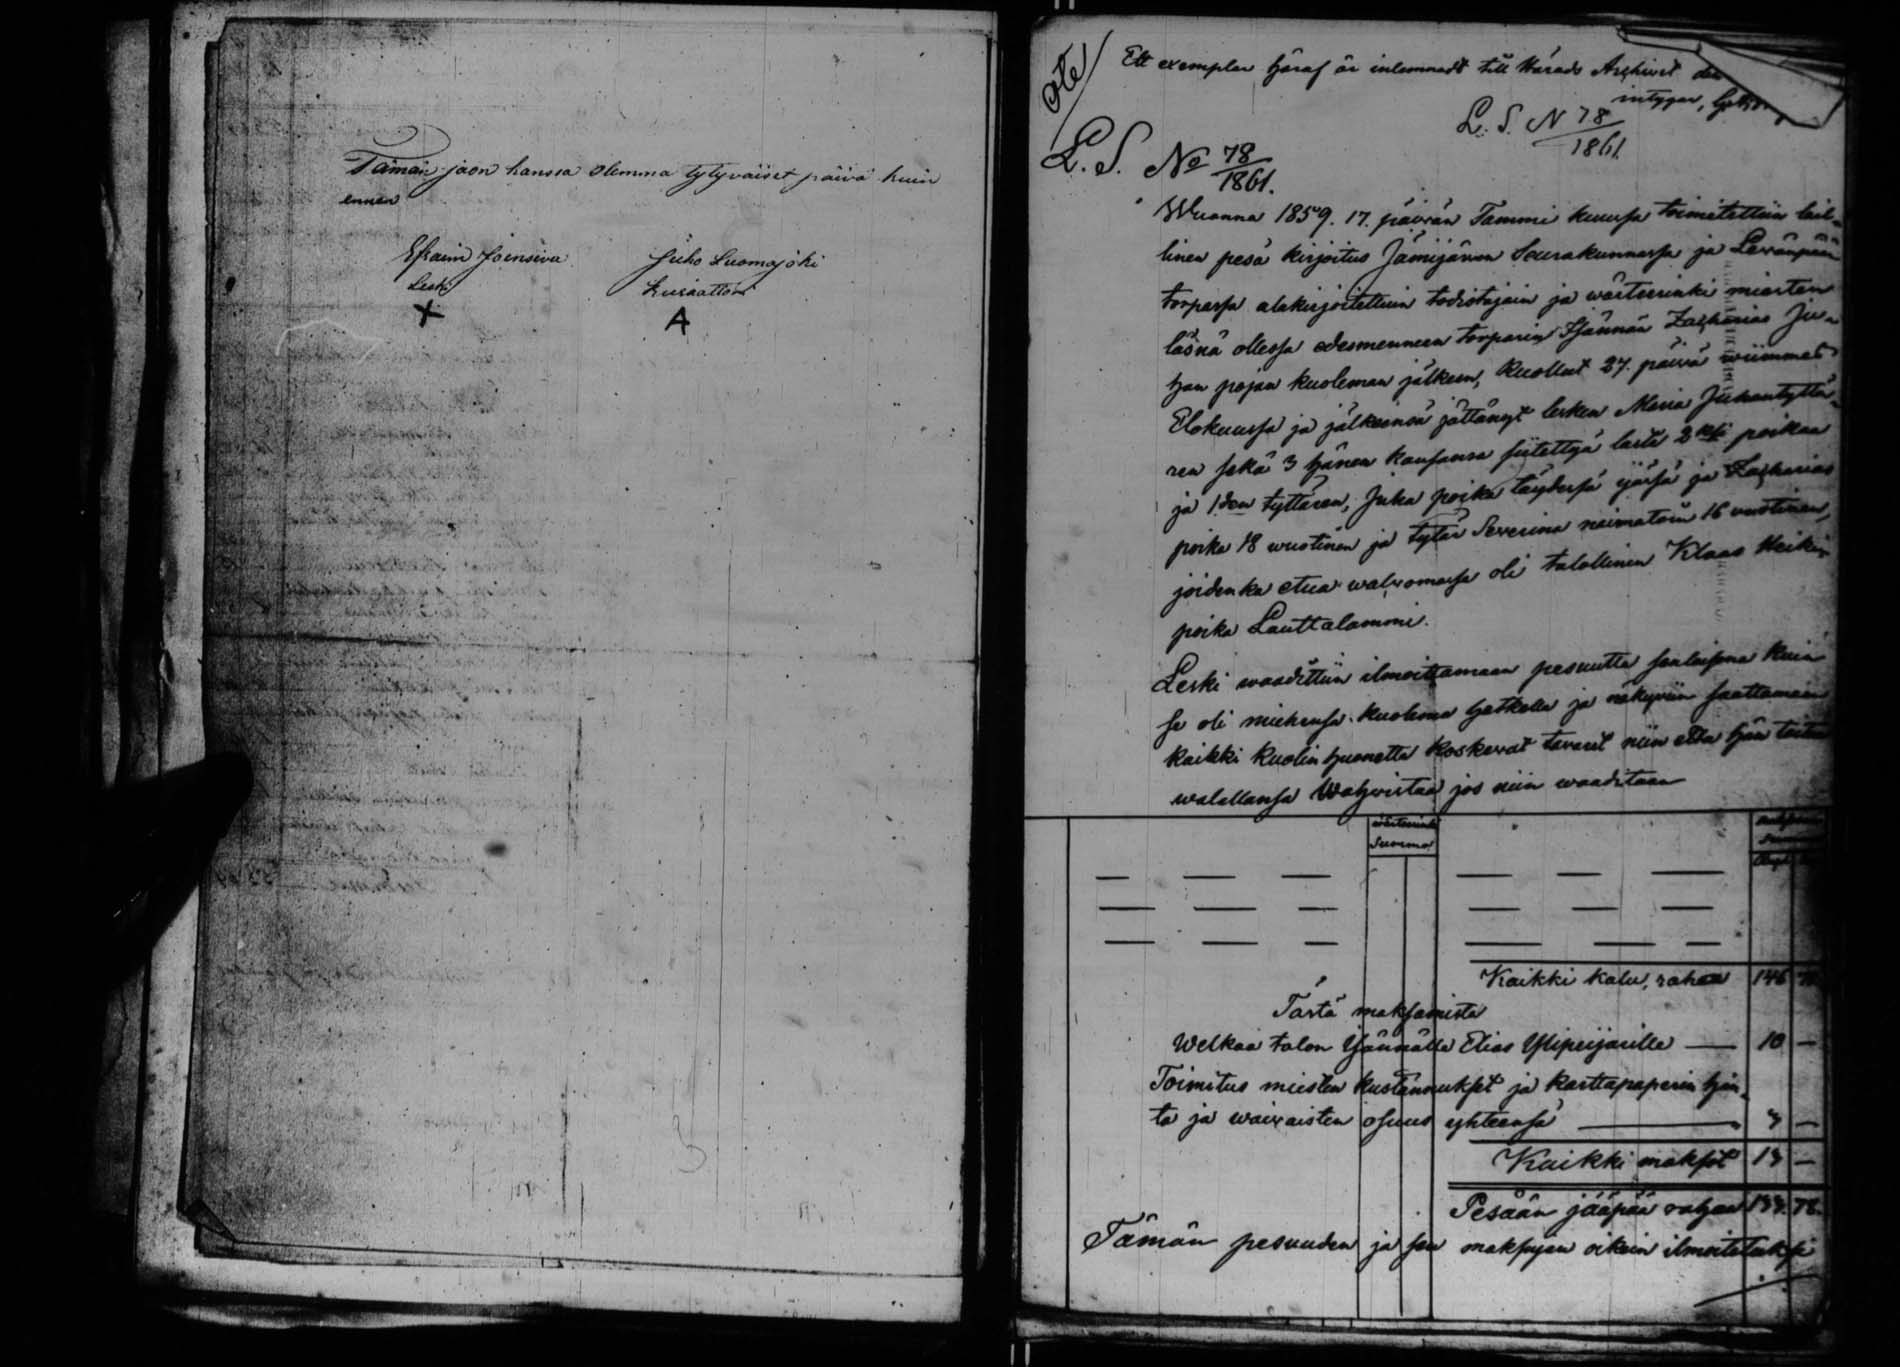 Tämän jaon kanssa olemma tytyväiset päivä kuin
ennen
Efraim Joensivu Juho Luomajoki
Leski
X A
ote
Ett exemplar häraf är inlemnadt till Härads Archivet
intygar,
L. S. N 78/1861.
L. S. No 78/1861.
Wuonna 1859. 17. päivän Tammi kuussa toimitettiin lail-
linen pesä kirjoitus Jämijärven Seurakunnassa ja Leväpään
torpassa alakirjoitettuin todistajain ja wärteerinki miesten
läsnä ollessa edesmenneen torparin Zacharias Ju-
han pojan kuoleman jälkeen, kuollut 27. päivä wiimmes
Elokuussa ja jälkeensä jättänyt lesken Maria Juhantyttä-
ren sekä 3 hänen kanssansa siitettyä lasta 2ksi poikaa
ja 1den tyttären, Juha poika täydessä ijässä ja Zacharias
poika 18 wuotinen ja tytär Severina naimatoin 16 wuotinen,
joidenka etua walwomassa oli talollinen Klaas Heikin
poika Lauttalammi.
Leski waadittiin ilmoittamaan pesuutta sanlaisna kuin
se oli miehensä kuolema hetkellä ja näkyviin saattamaan
kaikki kuolin huonetta koskevat tavarat niin että hän taitaa
walallansa Wahwistaa jos niin waaditaan
Summa
Kaikki kalu, rahaa 146
Tästä maksamista
Welkaa talon Isännälle Elias Ylipeijarille — 10 —
Toimitus miesten kustannukset ja karttapaperin hin-
ta ja waiwaisten osuus yhteensä — 3 —
Kaikki maksot 13 —
Pesään jääpää rahaa 133. 78.
Tämän pesuuden ja sen maksujen oikein ilmoitetuksi